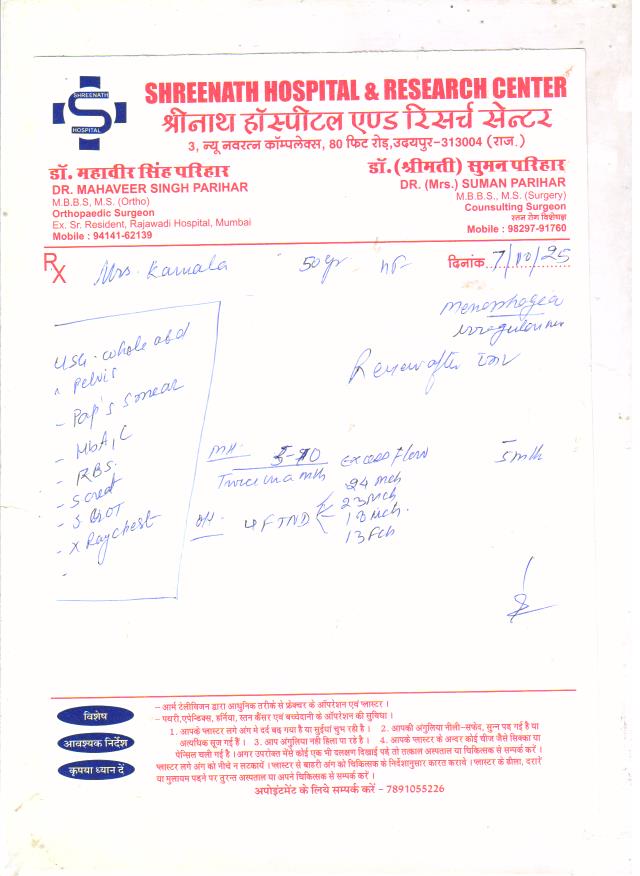 SHREENATH
HOSPITAL
SHREENATH HOSPITAL & RESEARCH CENTER
श्रीनाथ हॉस्पीटल एण्ड रिसर्च सेन्टर
3, न्यू नवरत्न कॉम्पलेक्स, 80 फिट रोड़, उदयपुर-313004 (राज.)
डॉ. महावीर सिंह परिहार
DR. MAHAVEER SINGH PARIHAR
M.B.B.S, M.S. (Ortho)
Orthopaedic Surgeon
Ex. Sr. Resident, Rajawadi Hospital, Mumbai
Mobile : 94141-62139
डॉ. (श्रीमती) सुमन परिहार
DR. (Mrs.) SUMAN PARIHAR
M.B.B.S., M.S. (Surgery)
Counsulting Surgeon
स्तन रोग विशेषज्ञ
Mobile : 98297-91760
Rx Mrs. Kamala 50yr दिनांक 7/10/25
USG - whole abd
pelvis
- Pap's smear
- HbA1C
- RBS.
- S creat
- S GOT
- X Ray chest
-
Review after
MH. 5-10 Excess flow 5 mth
Twice in a mth
OH. 4 FTND
24 Mch
23 Mch
18 Mch.
13 Fch
विशेष
आवश्यक निर्देश
कृपया ध्यान दें
– आर्म टेलीविजन द्वारा आधुनिक तरीके से फ्रेक्चर के ऑपरेशन एवं प्लास्टर ।
– पथरी, एपेन्डिक्स, हर्निया, स्तन कैंसर एवं बच्चेदानी के ऑपरेशन की सुविधा ।
1. आपके प्लास्टर लगे अंग मे दर्द बढ़ गया है या सुईयां चुभ रही है । 2. आपकी अंगुलिया नीली-सफेद, सुन्न पड़ गई है या
अत्यधिक सूज गई हैं । 3. आप अंगुलिया नही हिला पा रहे है । 4. आपके प्लास्टर के अन्दर कोई चीज जैसे सिक्का या
पेन्सिल चली गई है । अगर उपरोक्त मेंसे कोई एक भी दलक्षण दिखाई पड़े तो तत्काल अस्पताल या चिकित्सक से सम्पर्क करें ।
प्लास्टर लगे अंग को नीचे न लटकायें । प्लास्टर से बाहरी अंग को चिकित्सक के निर्देशानुसार कारत करावे । प्लास्टर के ढीला, दरारें
या मुलायम पडने पर तुरन्त अस्पताल या अपने चिकित्सक से सम्पर्क करें ।
अपोइंटमेंट के लिये सम्पर्क करें – 7891055226